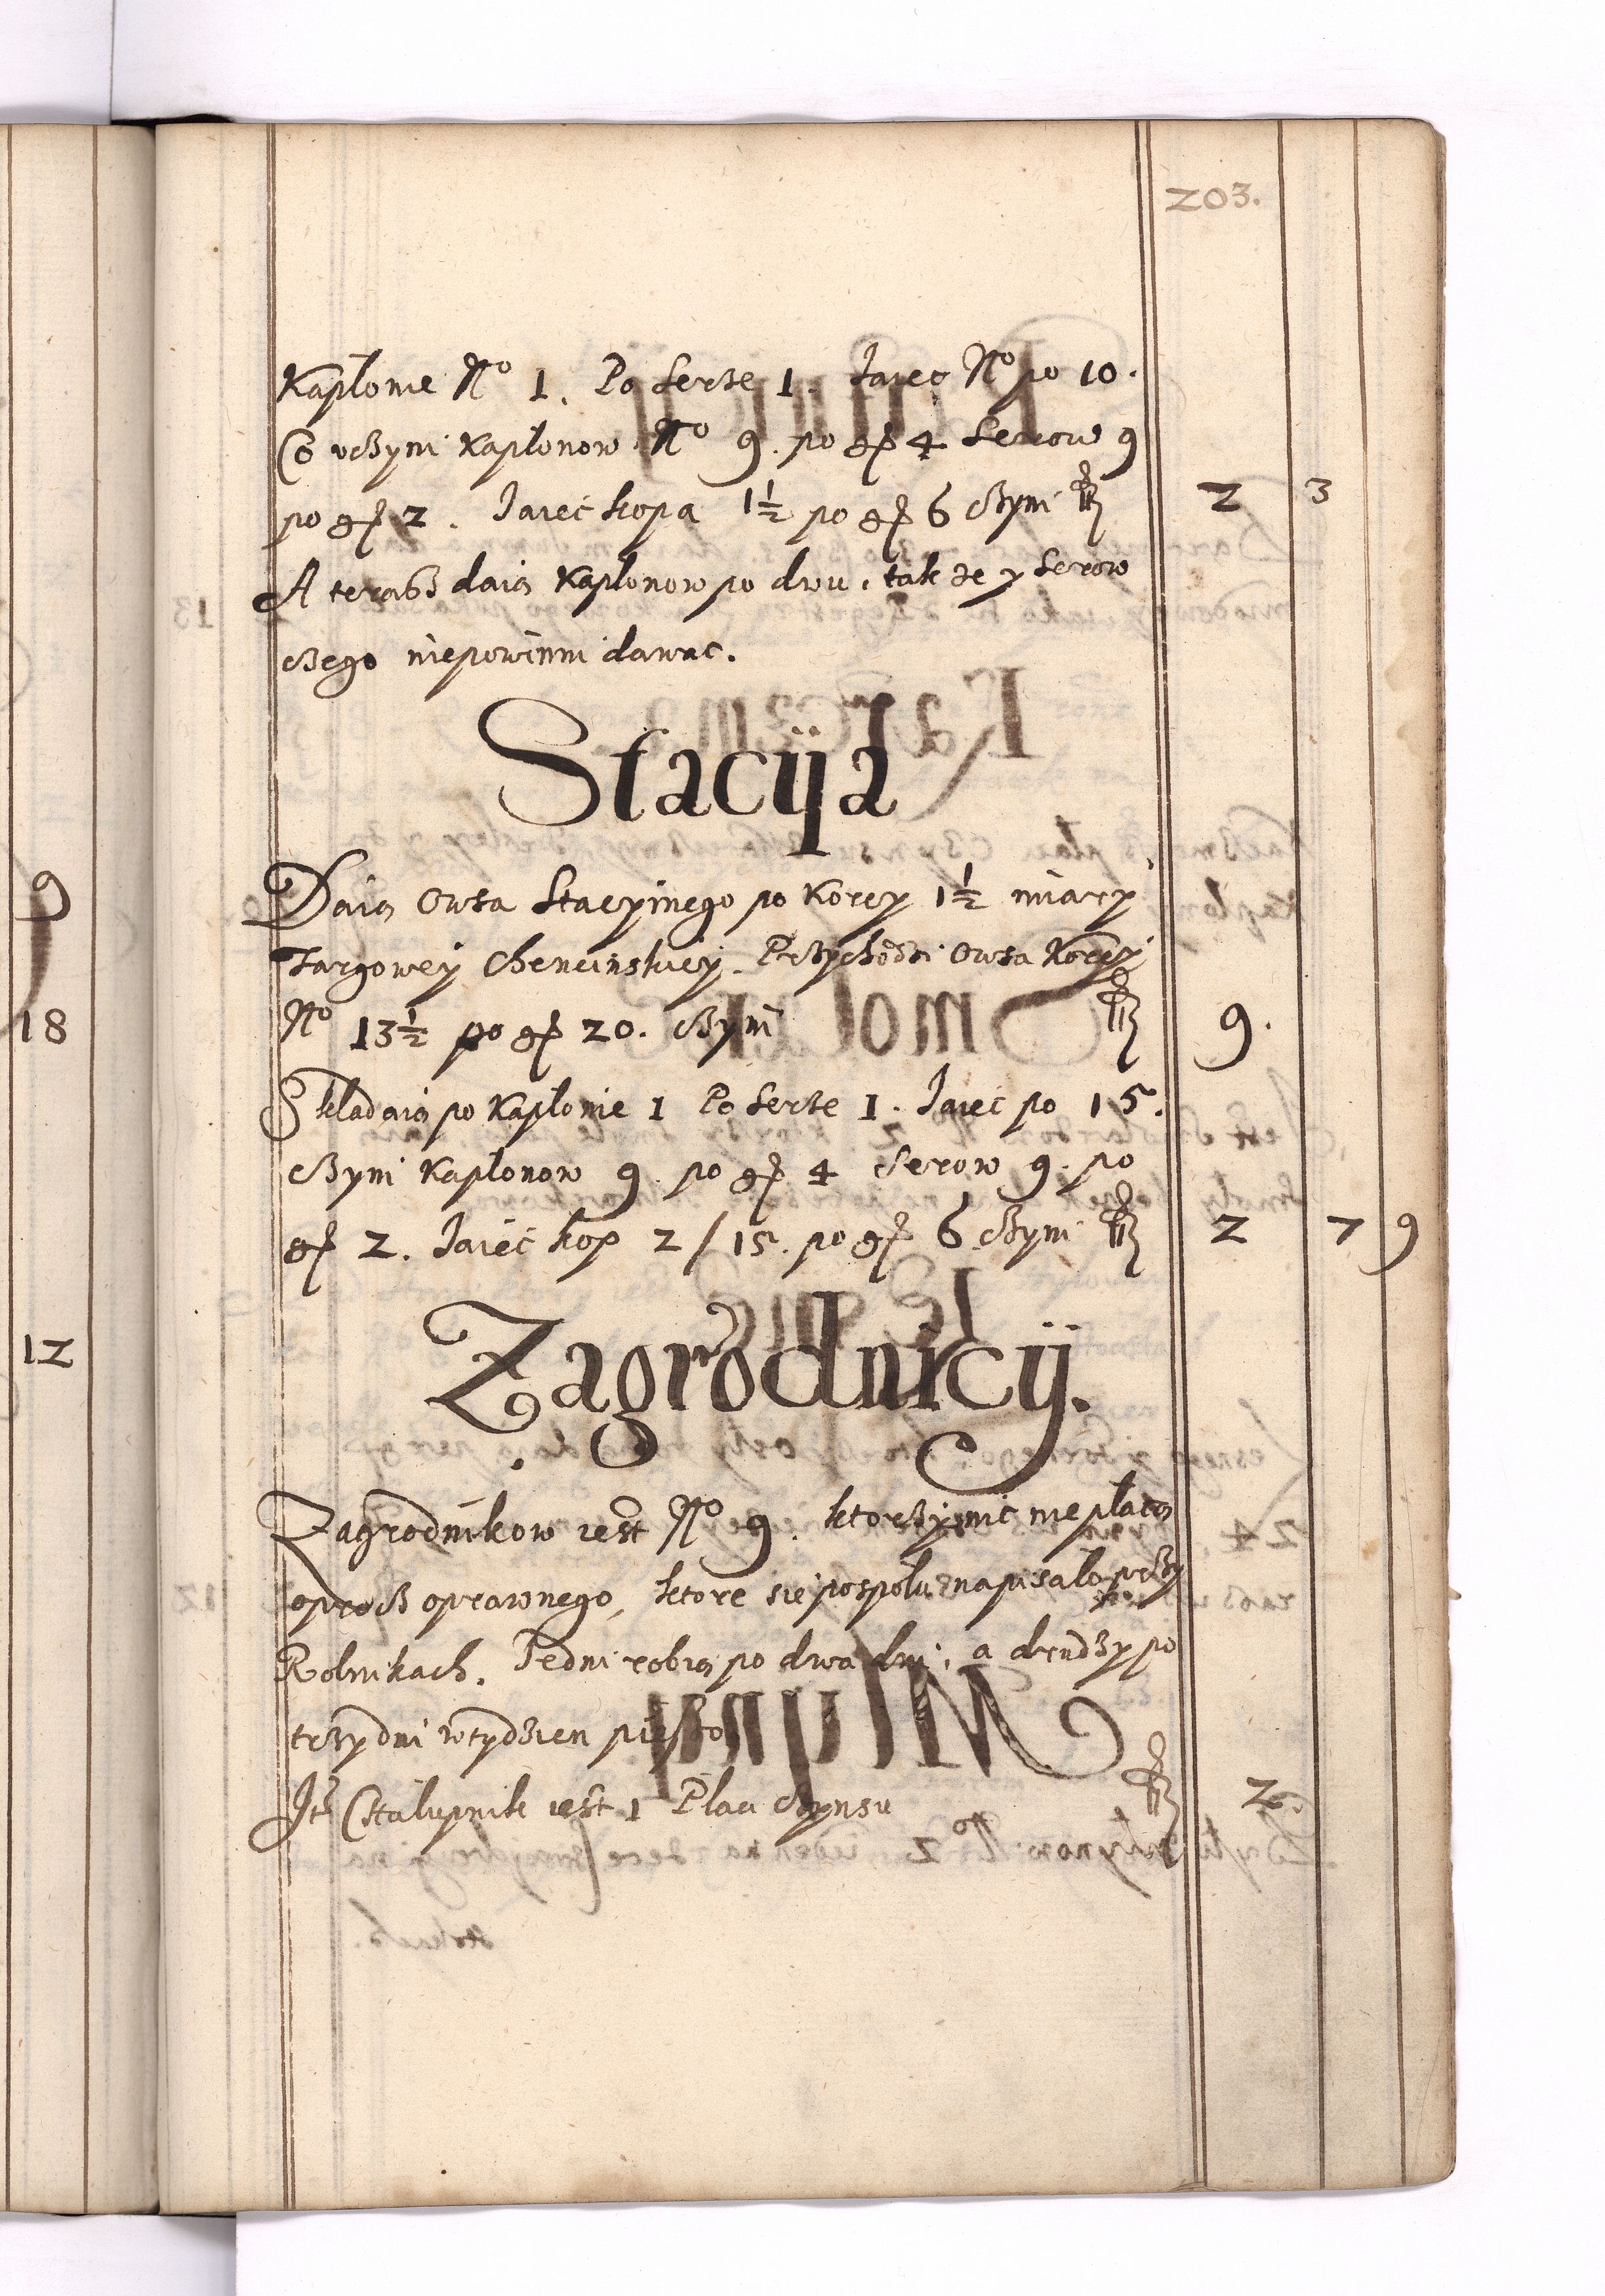 203.
Kapłonie No 1. Po Serze 1. Jaiec No po 10.
Co vczyni Kapłonow No 9. po gr 4 Serow 9
po gr 2. Jaiec kopa 1½ po gr 6 czyni fl 2 3
A terasz daią Kapłonow po dwu, takze y Serow
czego niepowinni dawac.
Stacija
Daią Owsa Stacyinego po Korcy 1½ miary
Targowey Chencinskiey. Przychodzi Owsa Korcy
No 13½ po gr 20. czyni fl 9.
Składaią po Kapłonie 1 Po Serze 1. Jaiec po 15.
czyni Kapłonow 9. po gr 4 Serow 9. po
gr 2. Jaiec kop 2/15. po gr 6 czyni fl 2 7 9
Zagrodnicij.
Zagrodnikow iest No 9. ktorzy nic niepłacą
oprocz oprawnego, ktore się pospołu napisało przy
Rolnikach. Jedni robią po dwa dni, a drudzy po
trzy dni wtydzien pieszo
Ite Chałupnik iest 1 Płaci Czynsu fl 2.
9
18
12